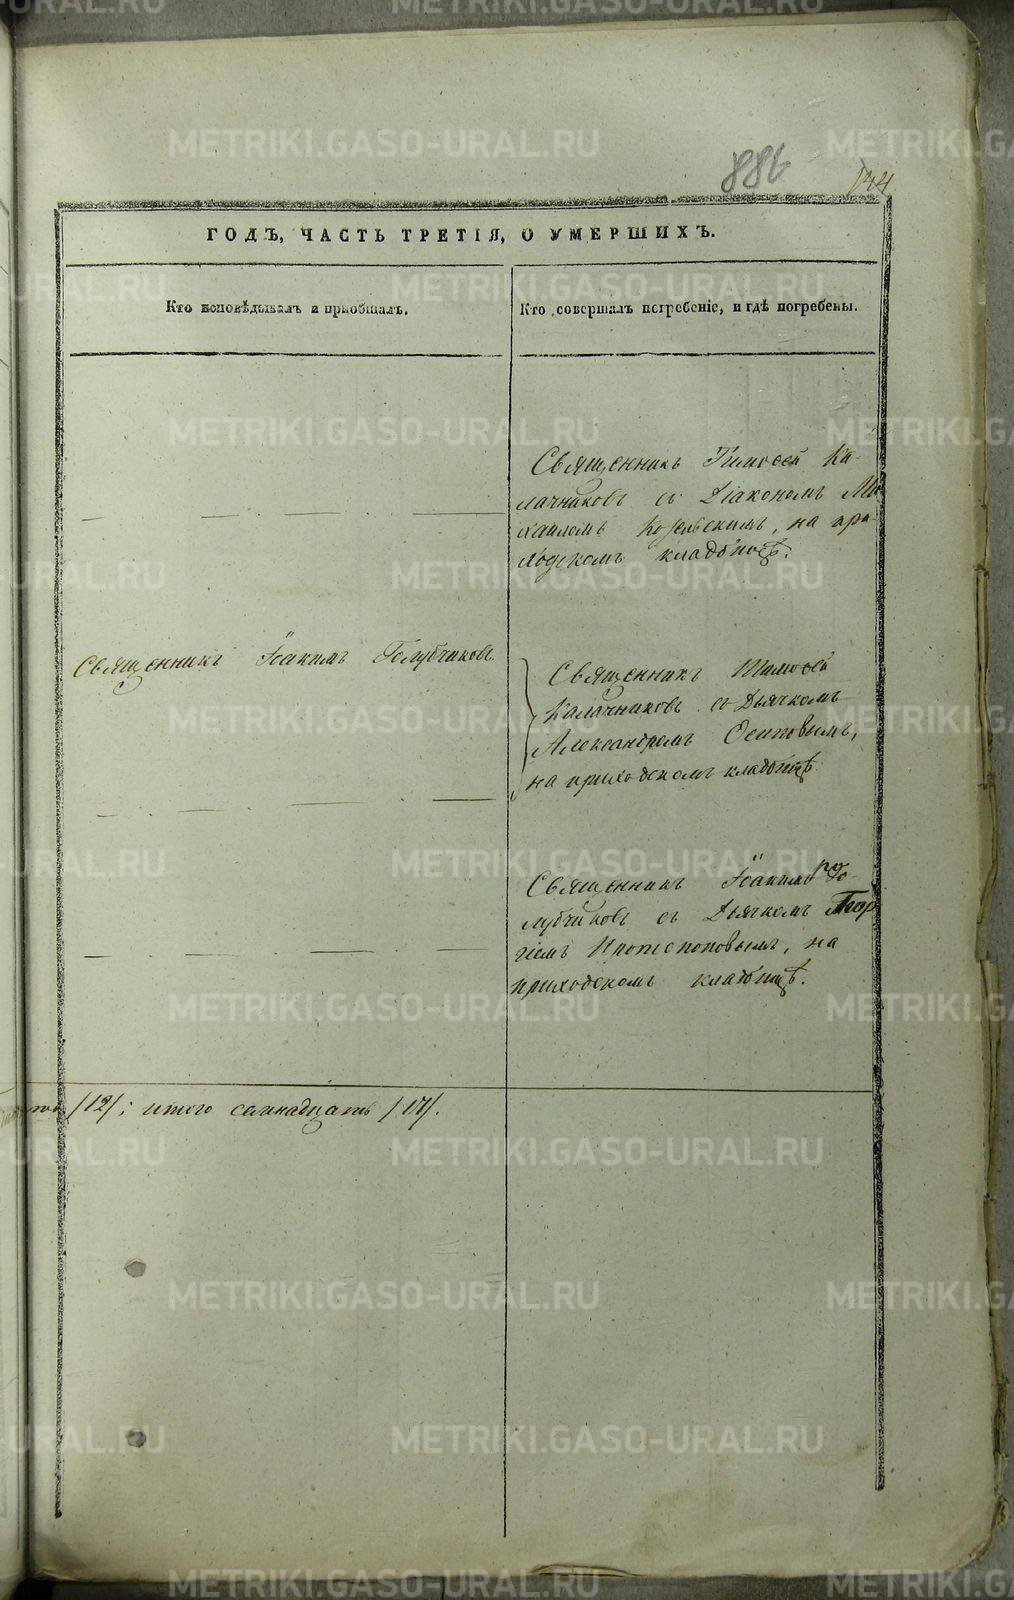 886
144
ГОДЪ, ЧАСТЬ ТРЕТІЯ, О УМЕРШИХЪ.
Кто исповѣдывалъ и пріобщалъ.
Кто совершалъ погребеніе, и гдѣ погребены.
Священникъ Тимофей Ка-
лачниковъ съ Діакономъ Ми
хаиломъ Козельскимъ, на при-
ходскомъ кладбищѣ.
Священникъ Іоакимъ Голубчиковъ.
Священникъ Тимофей
Калачниковъ съ Дьячкомъ
Александромъ Осиповымъ,
на приходскомъ кладбищѣ
Священникъ Іоакимъ Го-
лубчиковъ съ Дьячкомъ Геор
гіемъ Протопоповымъ, на
приходскомъ кладбищѣ.
/12/; итого семнадцать /17/.
METRIKI.GASO-URAL.RU